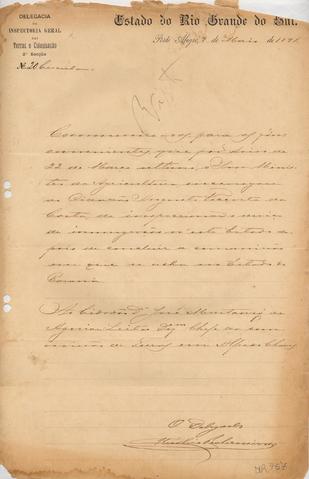 DELEGACIA
DA
INSPECTORIA GERAL
DAS
Terras e Colonisação
2ª Secção
Nº 20 Circular
Estado do Rio Grande do Sul.
Porto Alegre, 9 de Maio de 1891.
Communico-vos, para os fins
convenientes, que por Aviso de
22 de Março ultimo o Snr. Minis-
tro da Agricultura
o Cidadão Augusto da
Costa, de inspeccionar o serviço
de immigração n'este Estado de-
pois de concluir a commissão
em que se acha no Estado do
Paraná.
Ao Cidadão Dr. José Montaury de
Aguiar Leitão Dgmº Chefe da Com-
missão de Terras em Alfredo Chaves
O Delegado